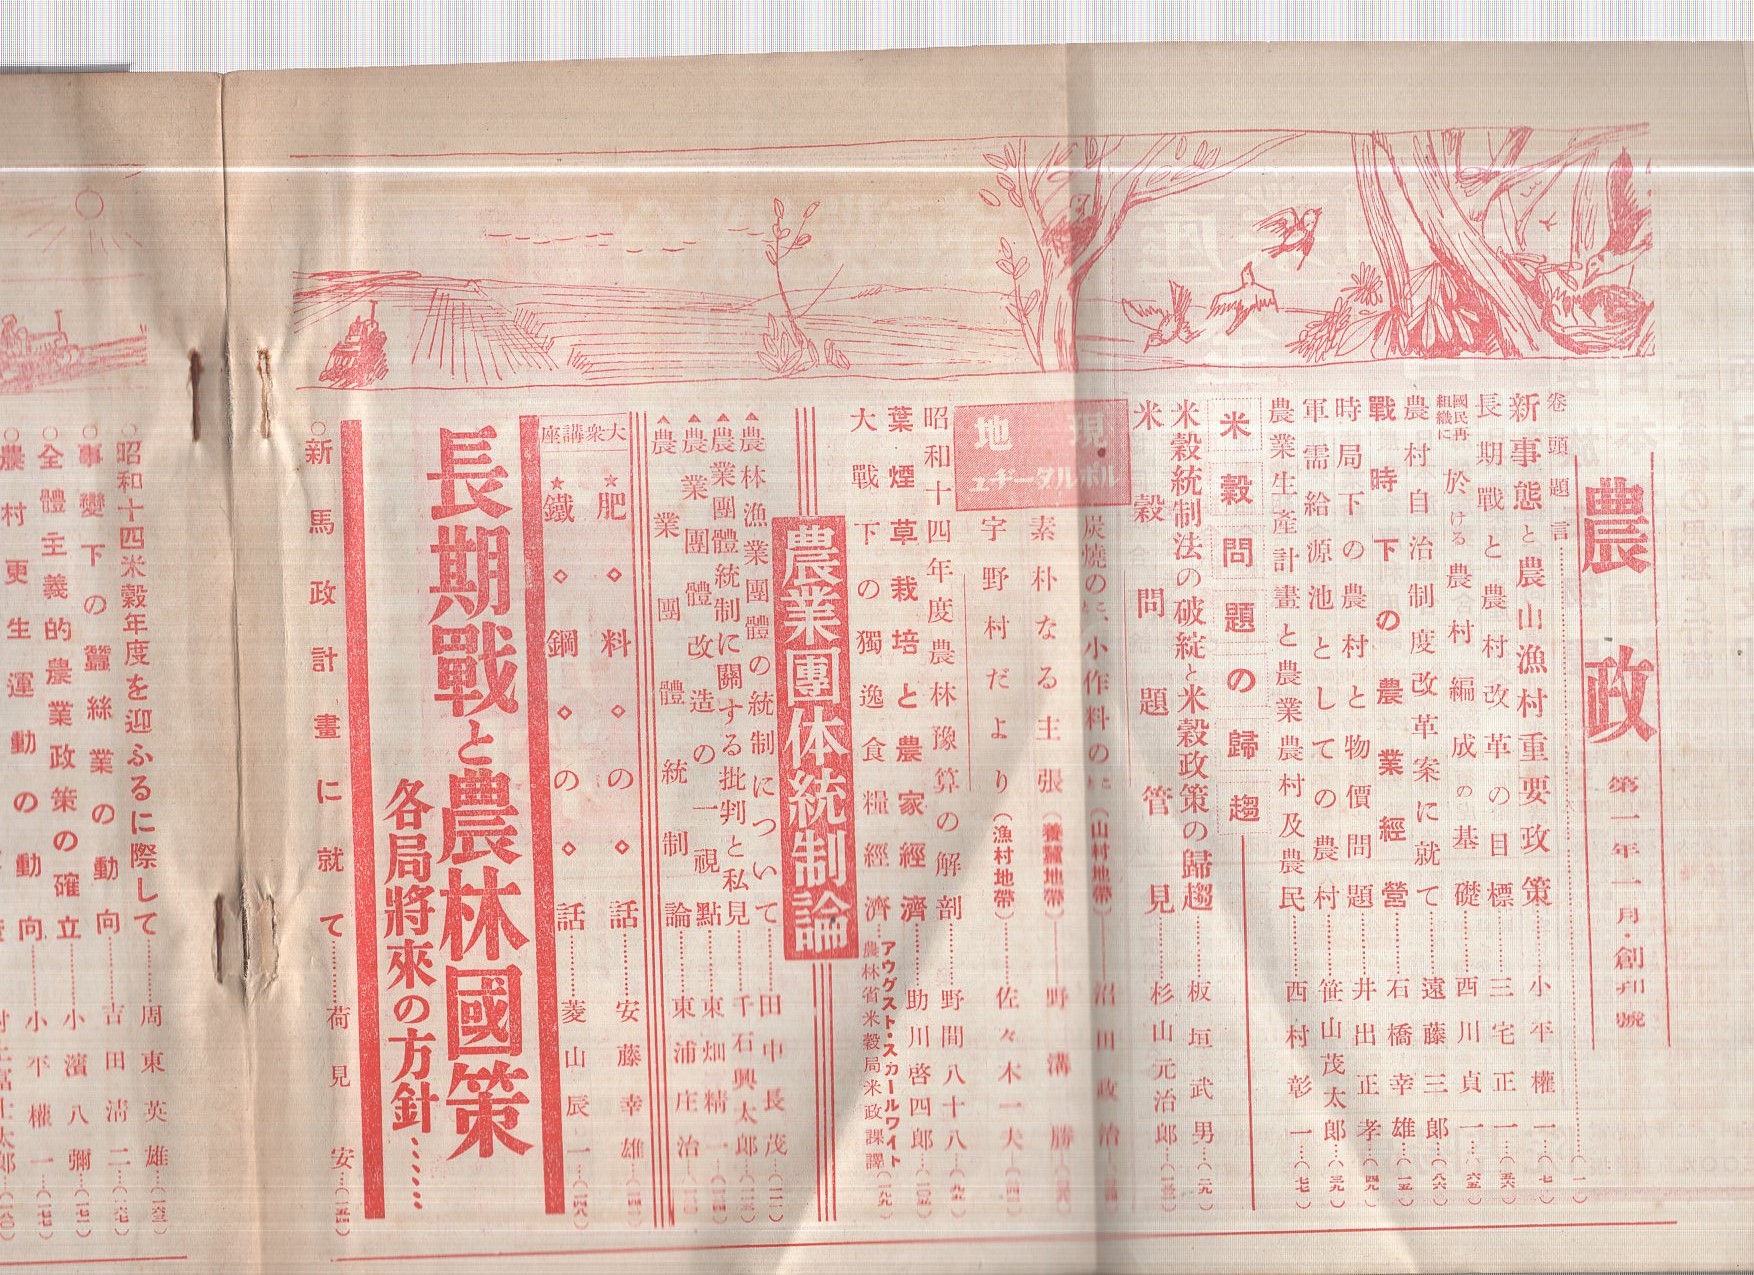 農政
第一年一月・創刊號
卷頭題言……(一)
新事態と農山漁村重要政策……小平權一…(七)
長期戰と農村改革の目標……三宅正一…(五六)
國民再組織に於ける農村編成の基礎……西川貞一…(六五)
農村自治制度改革案に就て……遠藤三郎…(八六)
戰時下の農業經營……石橋幸雄
時局下の農村と物價問題……井出正孝
軍需給源池としての農村……笹山茂太郎
農業生産計畫と農業農村及農民……西村彰一…(七七)
米穀問題の歸趨
米穀統制法の破綻と米穀政策の歸趨……板垣武男
米穀問題管見……杉山元治郎
現地
ルポルタージュ
炭燒のこ、小作料のこ(山村地帶)……沼田政治
素朴なる主張(養蠶地帶)……野溝勝
宇野村だより(漁村地帶)……佐々木一夫
昭和十四年度農林豫算の解剖……野間八十八
葉煙草栽培と農家經濟……助川啓四郎
大戰下の獨逸食糧經濟……アウグスト・スカールワイト
農林省米穀局米政課譯
農業團体統制論
農林漁業團體の統制について……田中長茂
農業團體統制に關する批判と私見……千石興太郎
農業團體改造の一視點……東畑精一
農業團體統制論……東浦庄治
大衆講座
★肥料の話……安藤幸雄
★鐵鋼の話……菱山辰一
長期戰と農林國策
各局將來の方針……
○新馬政計畫に就て……荷見安
○昭和十四米穀年度を迎ふるに際して……周東英雄
○事變下の蠶絲業の動向……吉田清二
○全體主義的農業政策の確立……小濱八彌
○農村更生運動の動向……小平權一